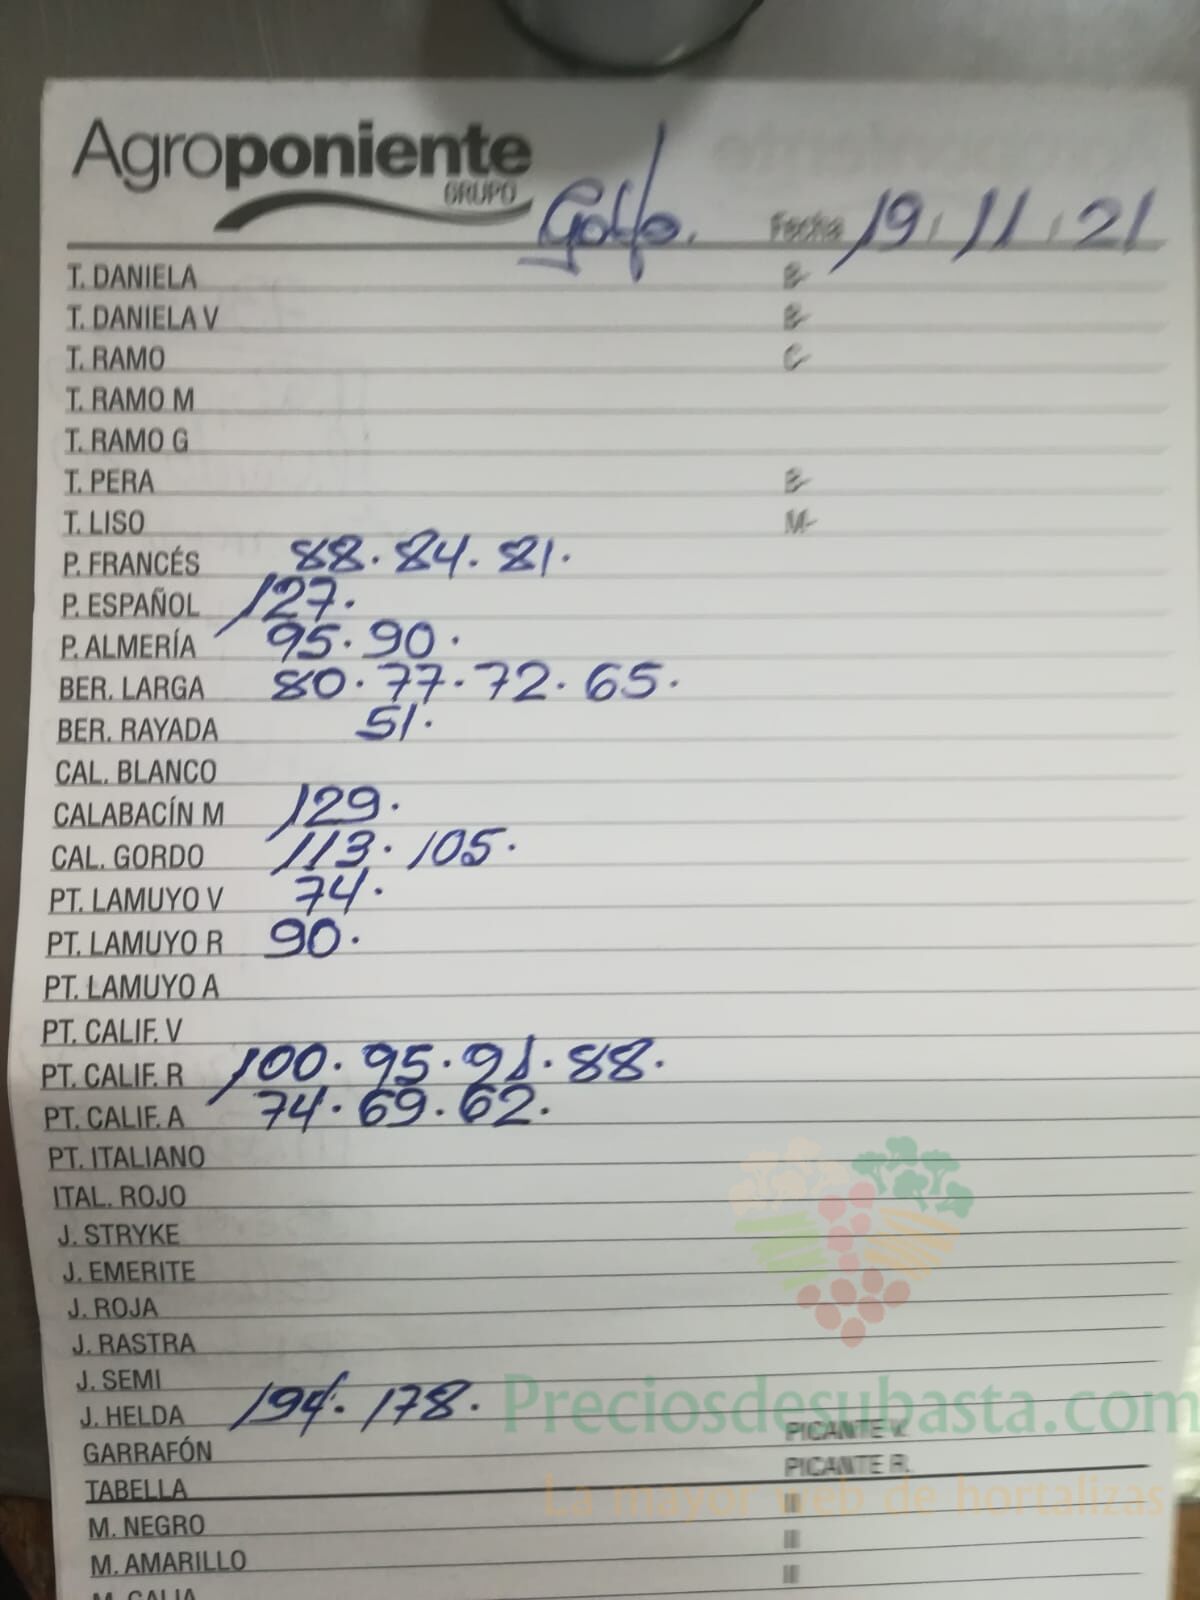 Agroponiente
GRUPO
Golfo. Fecha 19.11.21
T. DANIELA B-
T. DANIELA V B-
T. RAMO C-
T. RAMO M
T. RAMO G
T. PERA B-
T. LISO M-
P. FRANCÉS 88. 84. 81.
P. ESPAÑOL 127.
P. ALMERÍA 95. 90.
BER. LARGA 80. 77. 72. 65.
BER. RAYADA 51.
CAL. BLANCO
CALABACÍN M 129.
CAL. GORDO 113. 105.
PT. LAMUYO V 74.
PT. LAMUYO R 90.
PT. LAMUYO A
PT. CALIF. V
PT. CALIF. R 100. 95. 91. 88.
PT. CALIF. A 74. 69. 62.
PT. ITALIANO
ITAL. ROJO
J. STRYKE
J. EMERITE
J. ROJA
J. RASTRA
J. SEMI
J. HELDA 194. 178.
Preciosdesubasta.com
GARRAFÓN PICANTE V.
TABELLA PICANTE R.
La mayor web de hortalizas
M. NEGRO II
M. AMARILLO II
M. GALIA II